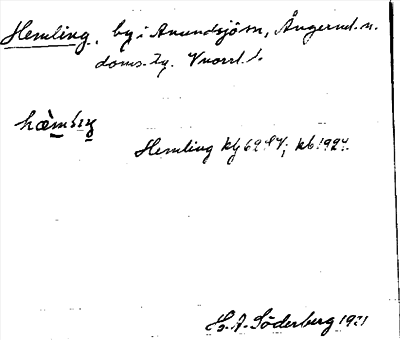 Hemling, by i Anundsjö sn, Ångerml. n.
doms. Vnorrl. l.
hæ̀mlıŋ
Hemling kb 1927.
E. F. Söderberg 1921